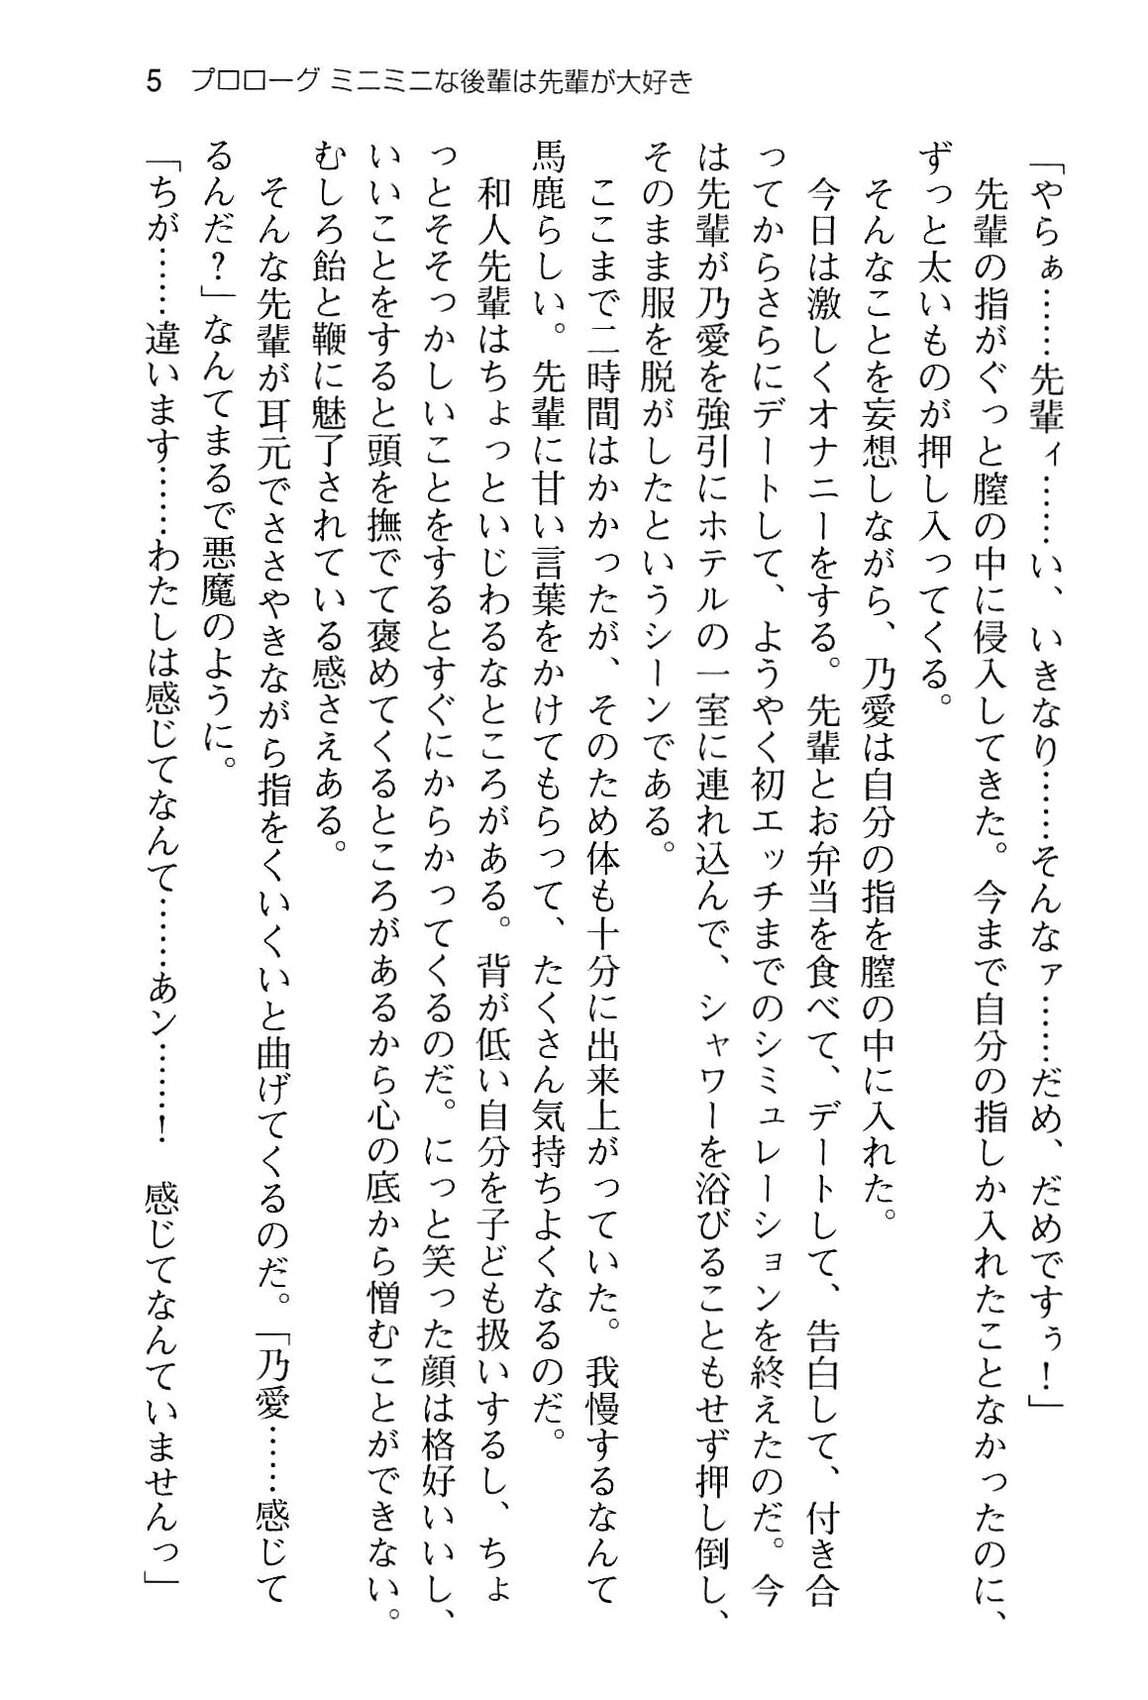 5 プロローグ ミニミニな後輩は先輩が大好き
「やらぁ……先輩ィ……い、いきなり……そんなァ……だめ、だめですぅ！」
先輩の指がぐっと膣の中に侵入してきた。今まで自分の指しか入れたことなかったのに、
ずっと太いものが押し入ってくる。
そんなことを妄想しながら、乃愛は自分の指を膣の中に入れた。
今日は激しくオナニーをする。先輩とお弁当を食べて、デートして、告白して、付き合
ってからさらにデートして、ようやく初エッチまでのシミュレーションを終えたのだ。今
は先輩が乃愛を強引にホテルの一室に連れ込んで、シャワーを浴びることもせず押し倒し、
そのまま服を脱がしたというシーンである。
ここまで二時間はかかったが、そのため体も十分に出来上がっていた。我慢するなんて
馬鹿らしい。先輩に甘い言葉をかけてもらって、たくさん気持ちよくなるのだ。
和人先輩はちょっといじわるなところがある。背が低い自分を子ども扱いするし、ちょ
っとそそっかしいことをするとすぐにからかってくるのだ。にっと笑った顔は格好いいし、
いいことをすると頭を撫でて褒めてくるところがあるから心の底から憎むことができない。
むしろ飴と鞭に魅了されている感さえある。
そんな先輩が耳元でささやきながら指をくいくいと曲げてくるのだ。「乃愛……感じて
るんだ？」なんてまるで悪魔のように。
「ちが……違います……わたしは感じてなんて……あン……！　感じてなんていませんっ」